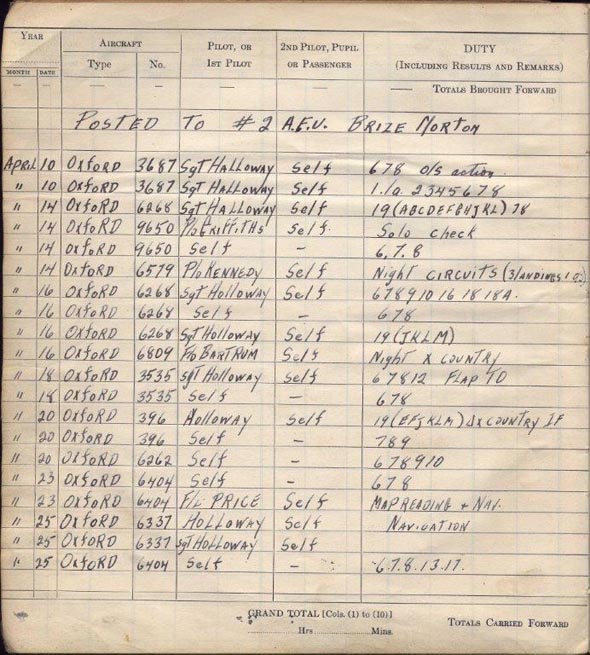 YEAR AIRCRAFT PILOT, OR 1ST PILOT 2ND PILOT, PUPIL OR PASSENGER DUTY (INCLUDING RESULTS AND REMARKS)
MONTH DATE Type No.
— — — — — — — TOTALS BROUGHT FORWARD
POSTED TO #2 A.F.U. BRIZE NORTON
APRIL 10 OXFORD 3687 Sgt HALLOWAY Self 678 o/s action.
" 10 OXFORD 3687 Sgt HALLOWAY Self 1.1a. 2345678
" 14 OXFORD 6268 Sgt HALLOWAY Self 19(ABCDEFGHJKL) 78
" 14 OXFORD 9650 P/o GRIFFITHS Self. Solo check
" 14 OXFORD 9650 Self — 6,7.8
" 14 OXFORD 6579 P/o KENNEDY Self Night CIRCUITS (3 LANDINGS
" 16 OXFORD 6268 Sgt Holloway Self 678910 16 18 18A.
" 16 OXFORD 6268 Self — 678
" 16 OXFORD 6268 Sgt Holloway Self 19(JKLM)
" 16 OXFORD 6809 BARTRUM Self Night X COUNTRY
" 18 OXFORD 3535 Sgt Holloway Self 67812 FLAP TO
" 18 OXFORD 3535 Self — 678
" 20 OXFORD 396 Holloway Self 19(EFJKLM) X COUNTRY IF
" 20 OXFORD 396 Self — 789
" 20 OXFORD 6262 Self — 678910
" 23 OXFORD 6404 Self — 678
" 23 OXFORD 6404 F/L PRICE Self MAP READING + NAV.
" 25 OXFORD 6337 HOLLOWAY Self NAVIGATION
" 25 OXFORD 6337 Sgt HOLLOWAY Self
" 25 OXFORD 6404 Self — 6.7.8.13.17.
GRAND TOTAL [Cols. (1) to (10)]
Hrs. Mins. TOTALS CARRIED FORWARD